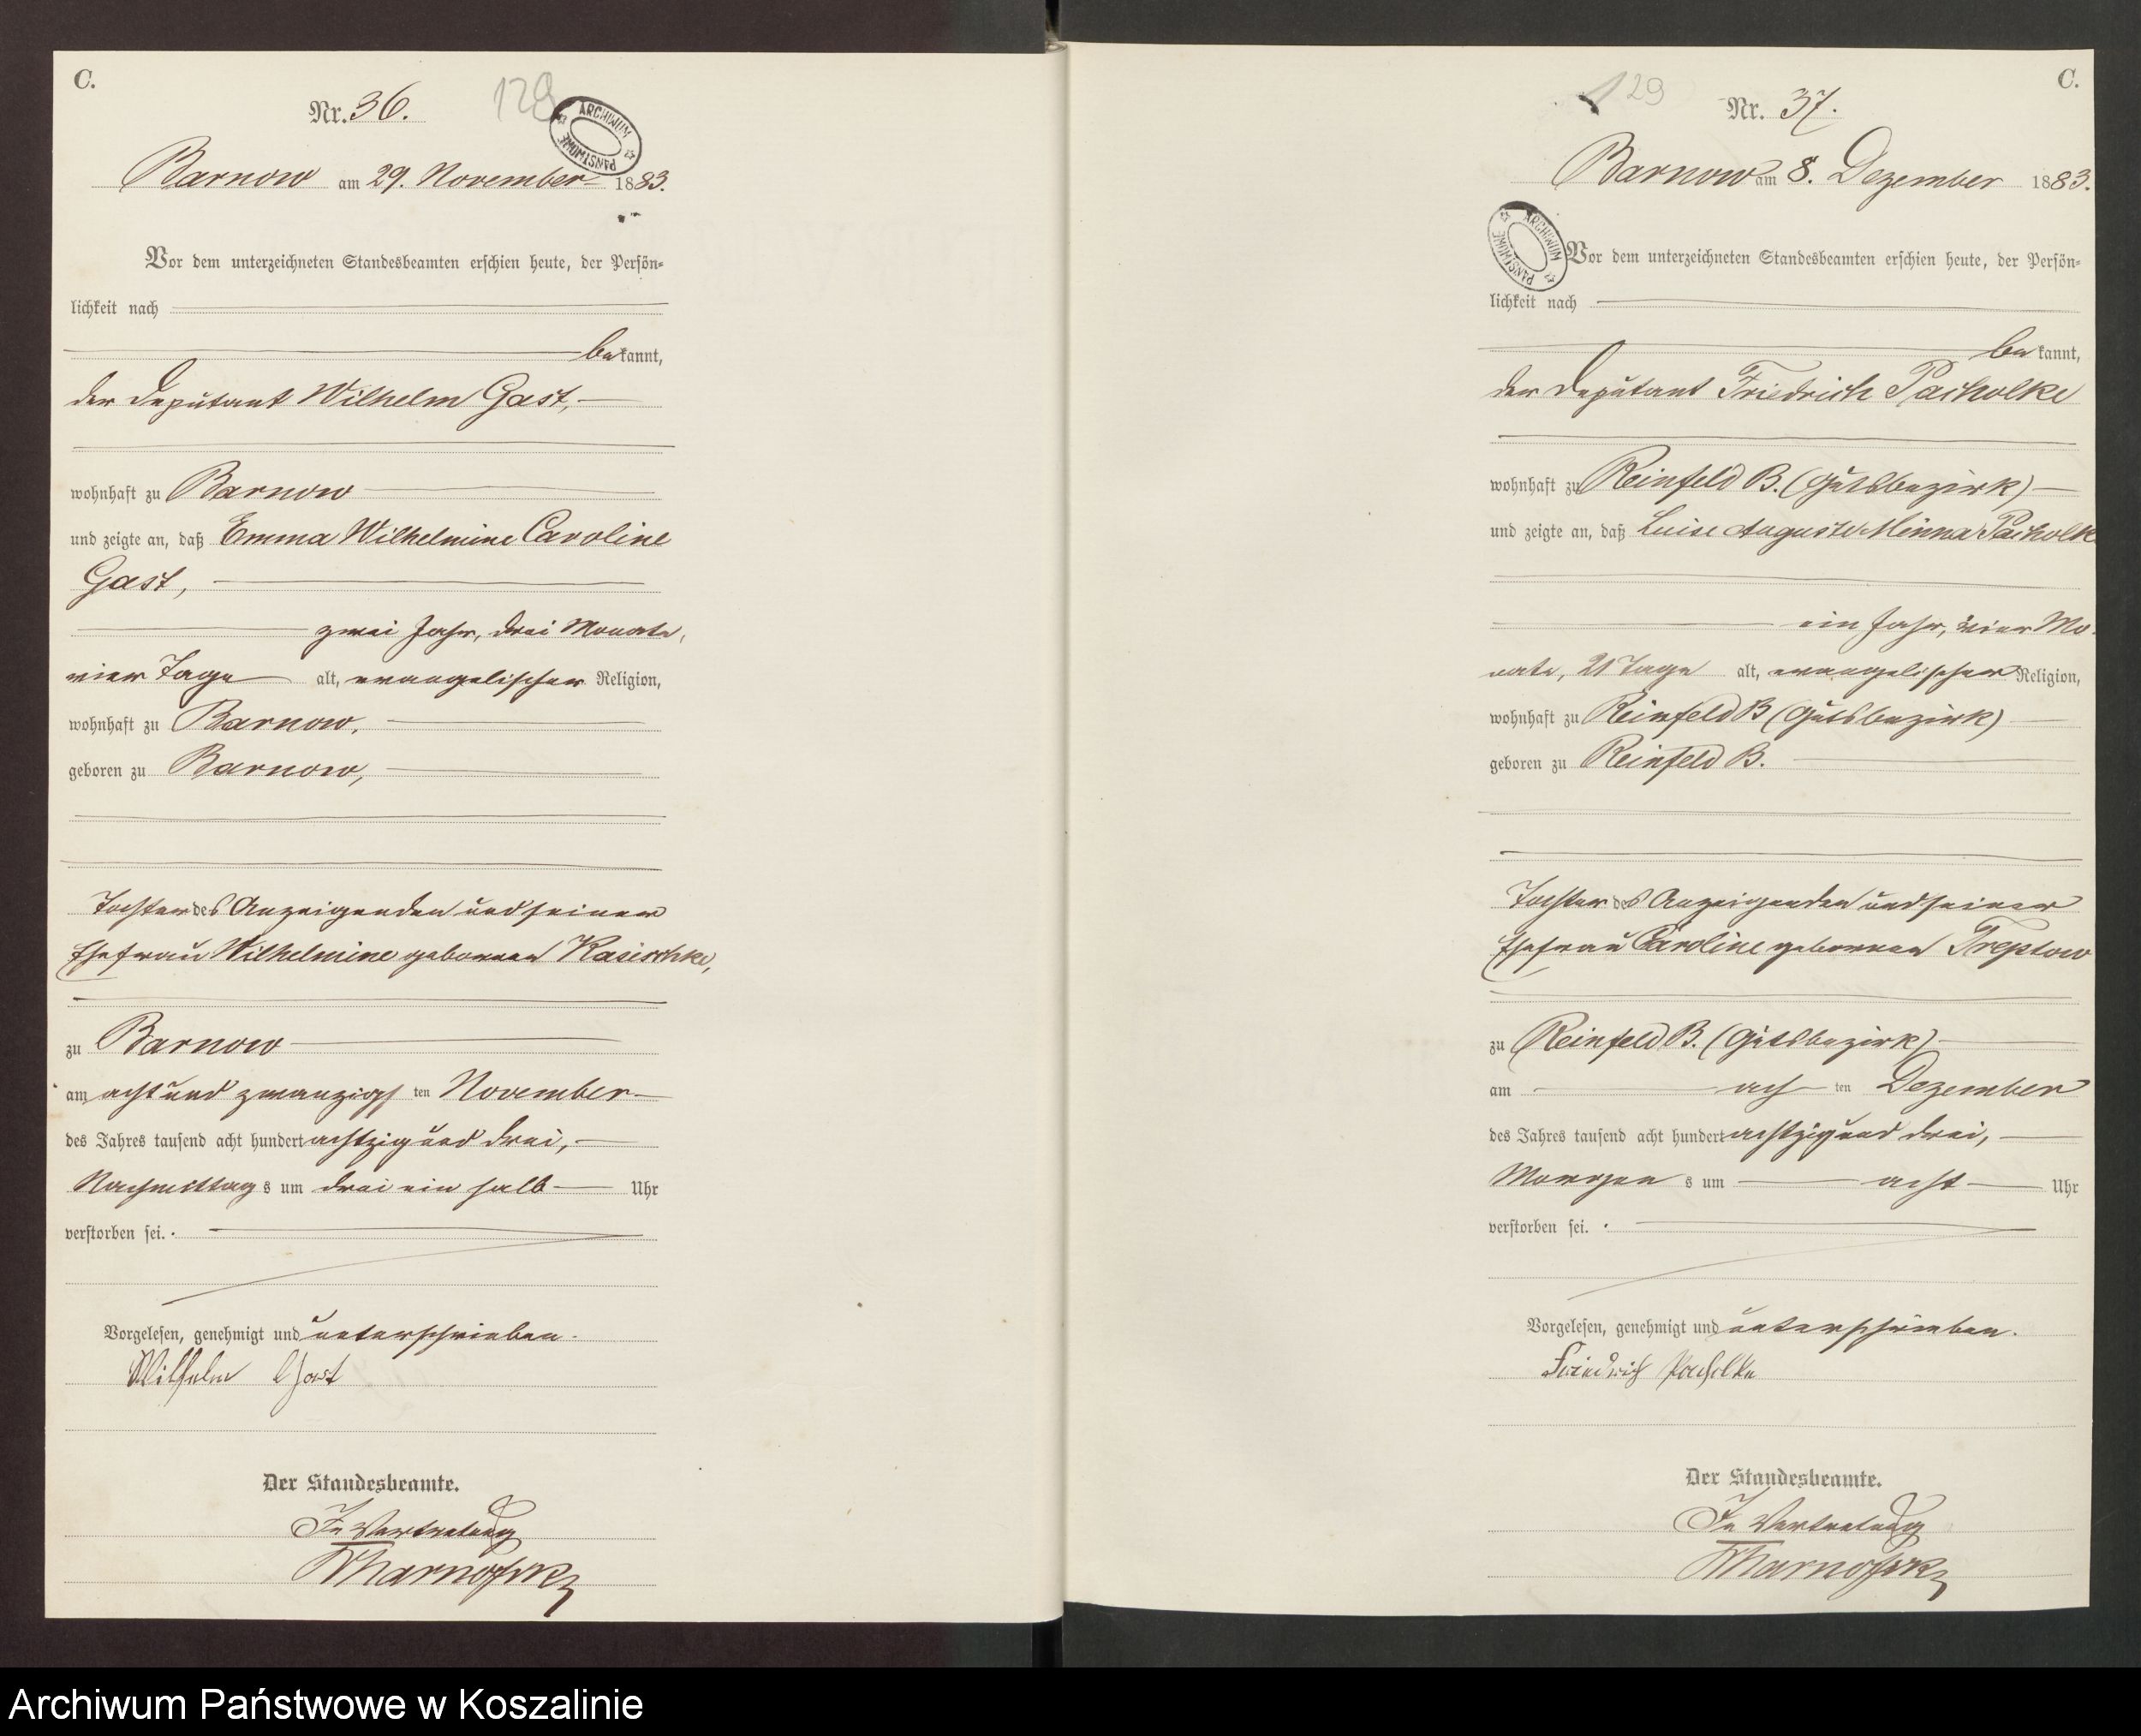 C.
Nr. 36.
128
ARCHIWUM PAŃSTWOWE
Barnow am 29. November 1883.
Vor dem unterzeichneten Standesbeamten erschien heute, der Persön-
lichkeit nach
bekannt,
der Deputant Wilhelm Gast,
wohnhaft zu Barnow
und zeigte an, daß Emma Wilhelmine Caroline
Gast,
zwei Jahr, drei Monate,
vier Tage alt, evangelischer Religion,
wohnhaft zu Barnow,
geboren zu Barnow,
Tochter des Anzeigenden und seiner
Ehefrau Wilhelmine geborenen Kasischke,
zu Barnow
am acht und zwanzigsten November
des Jahres tausend acht hundert achtzig und drei,
Nachmittags um drei ein halb Uhr
verstorben sei.
Vorgelesen, genehmigt und unterschrieben.
Wilhelm Gast
Der Standesbeamte.
In Vertretung
C.
129
Nr. 37.
Barnow am 8. Dezember 1883.
ARCHIWUM PAŃSTWOWE
Vor dem unterzeichneten Standesbeamten erschien heute, der Persön-
lichkeit nach
bekannt,
der Deputant Friedrich Pacholke
wohnhaft zu Reinfeld B. (Gutsbezirk)
und zeigte an, daß Luise Auguste Minna Pacholk
ein Jahr, vier Mo-
nate, 21 Tage alt, evangelischer Religion,
wohnhaft zu Reinfeld B (Gutsbezirk)
geboren zu Reinfeld B.
Tochter des Anzeigenden und seiner
Ehefrau Caroline geborenen Treptow
zu Reinfeld B. (Gutsbezirk)
am achten Dezember
des Jahres tausend acht hundert achtzig und drei,
Morgens um acht Uhr
verstorben sei.
Vorgelesen, genehmigt und unterschrieben.
Friedrich Pacholke
Der Standesbeamte.
In Vertretung
Archiwum Państwowe w Koszalinie